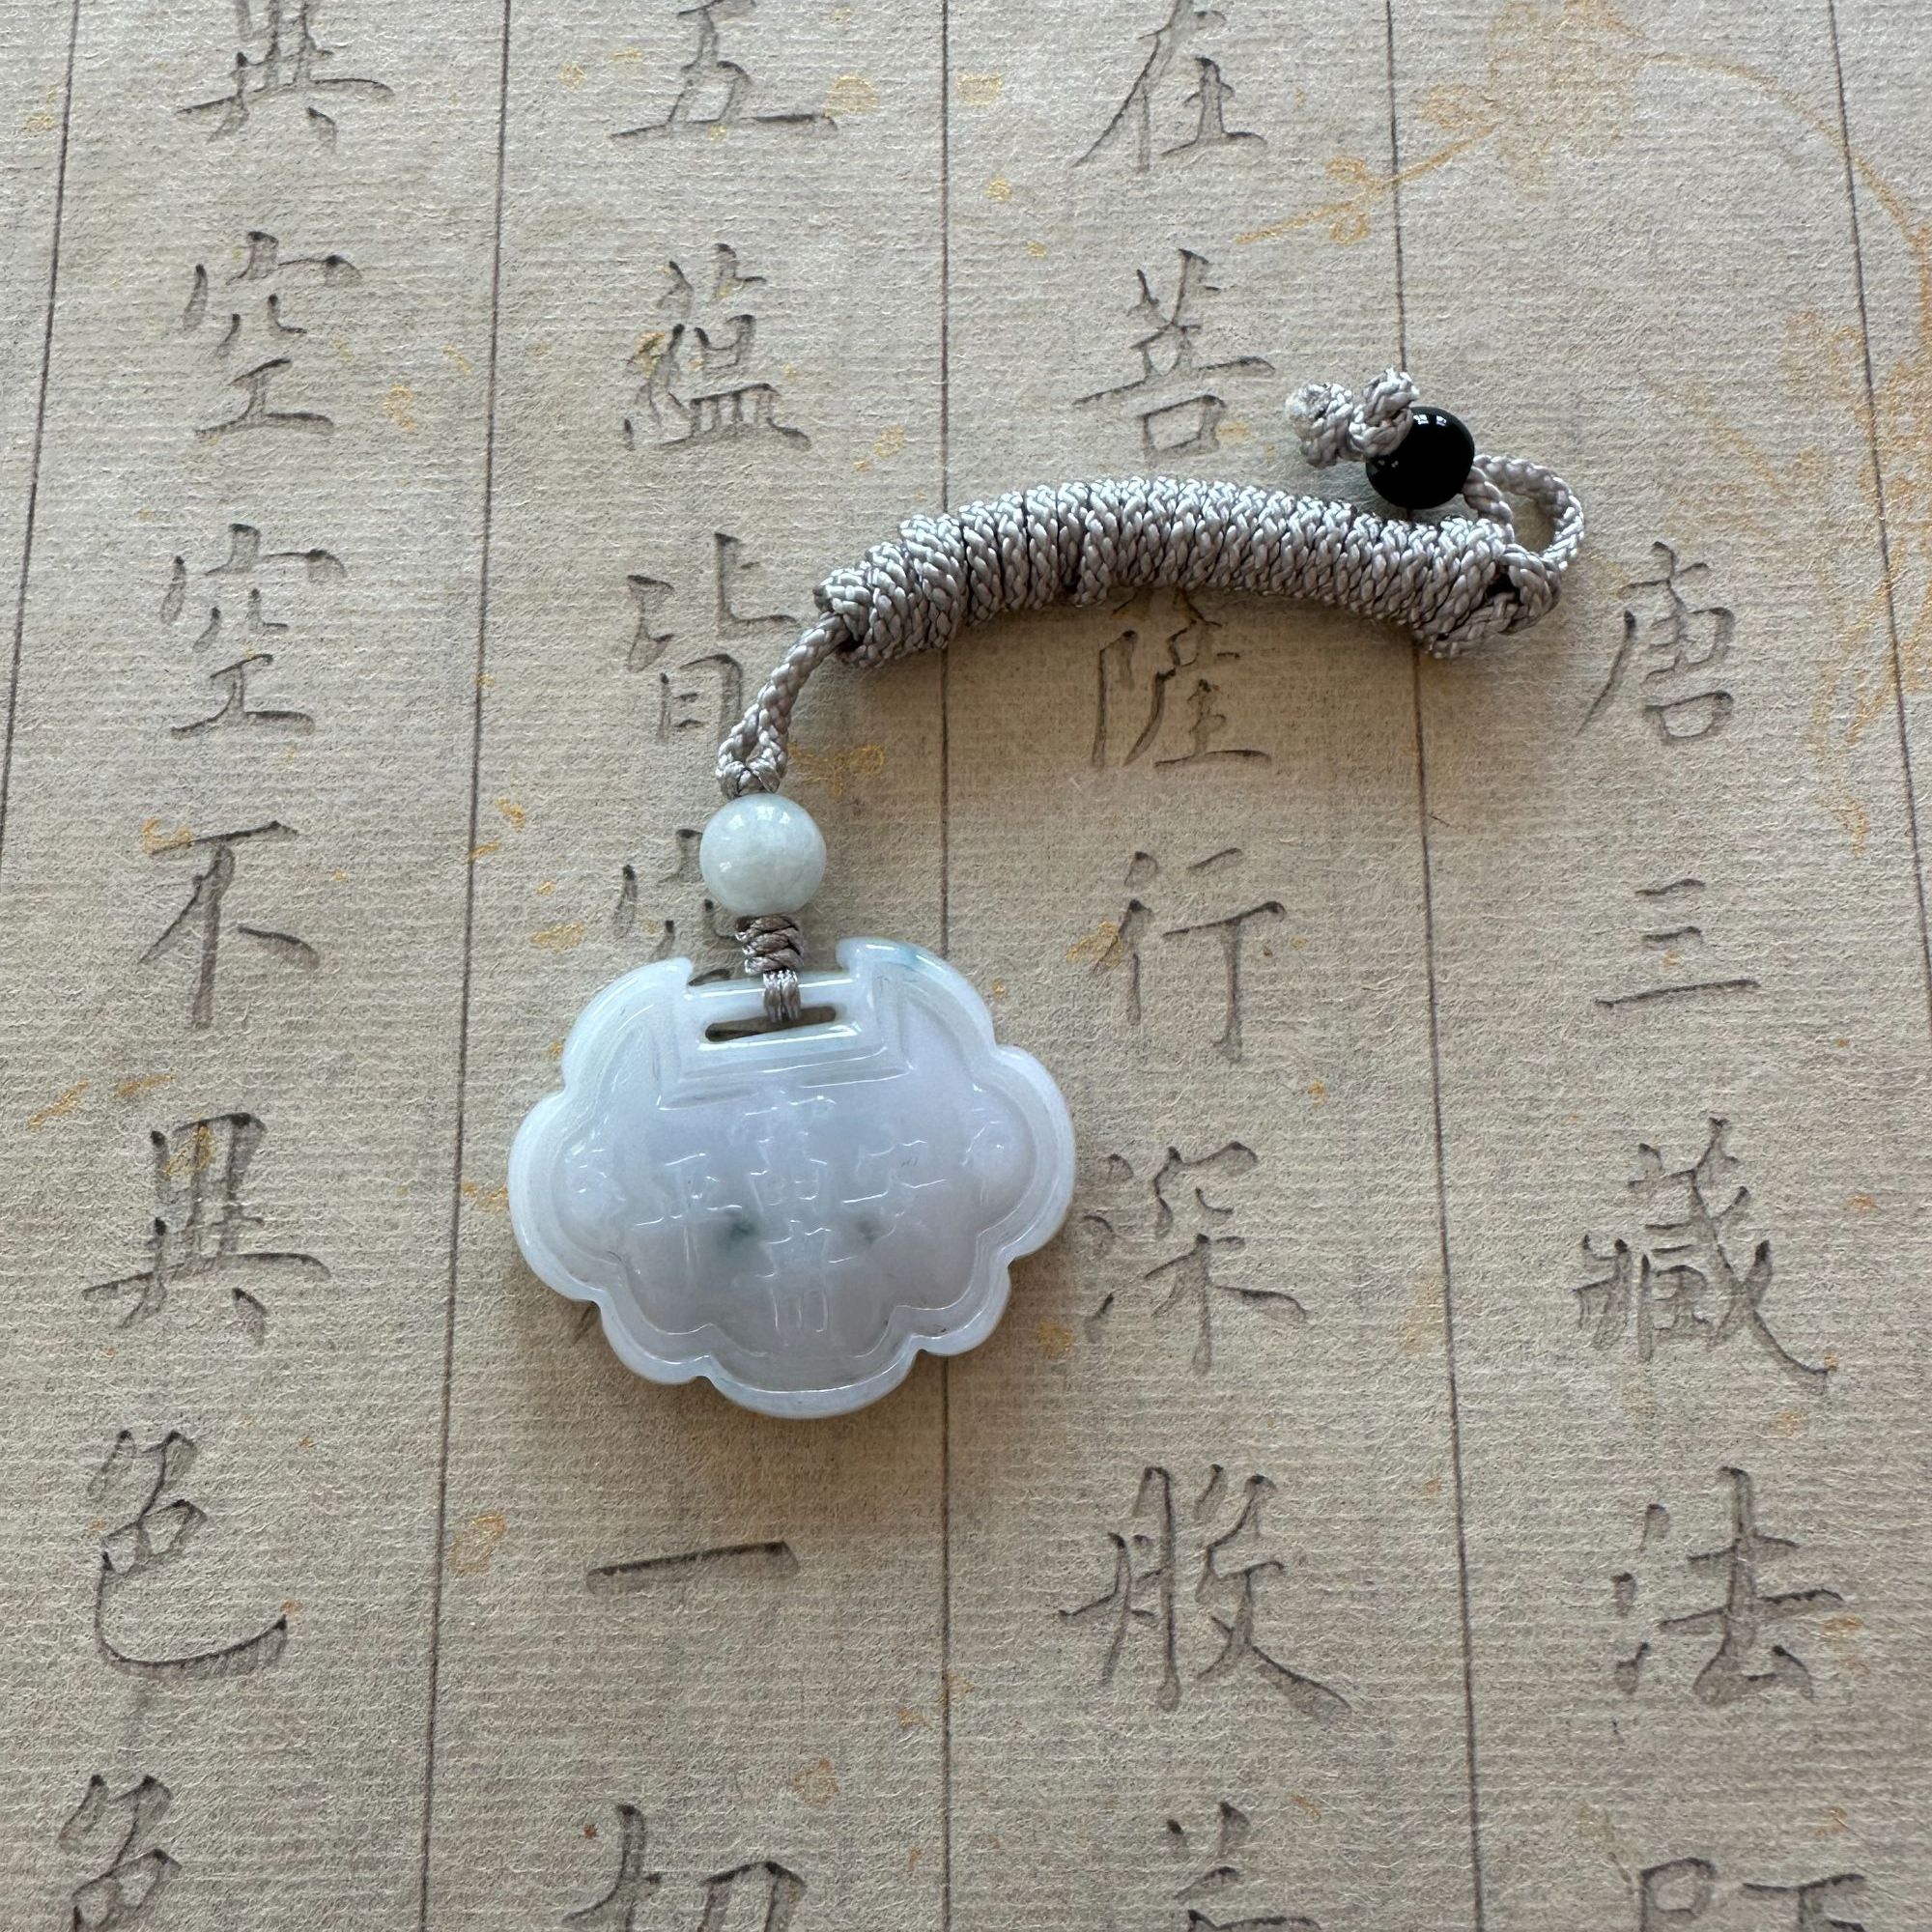 唐三藏法師
在菩薩行深般若
五蘊皆一切
異空空不異色色
富貴
平安